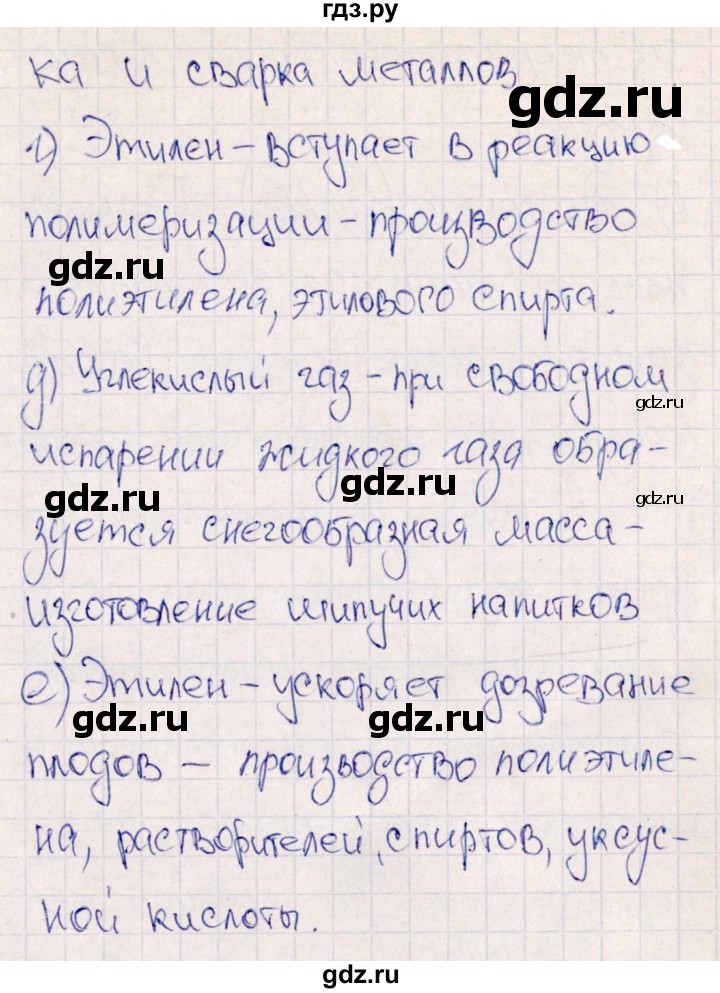 гдз.ру
ка и сварка металлов
gdz.ru
г) Этилен – вступает в реакцию
полимеризации – производство
gdz.ru
gdz.ru
полиэтилена, этилового спирта.
д) Углекислый газ – при свободном
gdz.ru
испарении жидкого газа обра-
gdz.ru
gdz.ru
gdz.ru
зуется снегообразная масса –
изготовление шипучих напитков
е) Этилен – ускоряет дозревание
gdz.ru
gdz.ru
плодов – производство полиэтиле-
на, растворителей, спиртов, уксус-
ной кислоты.
gdz.ru